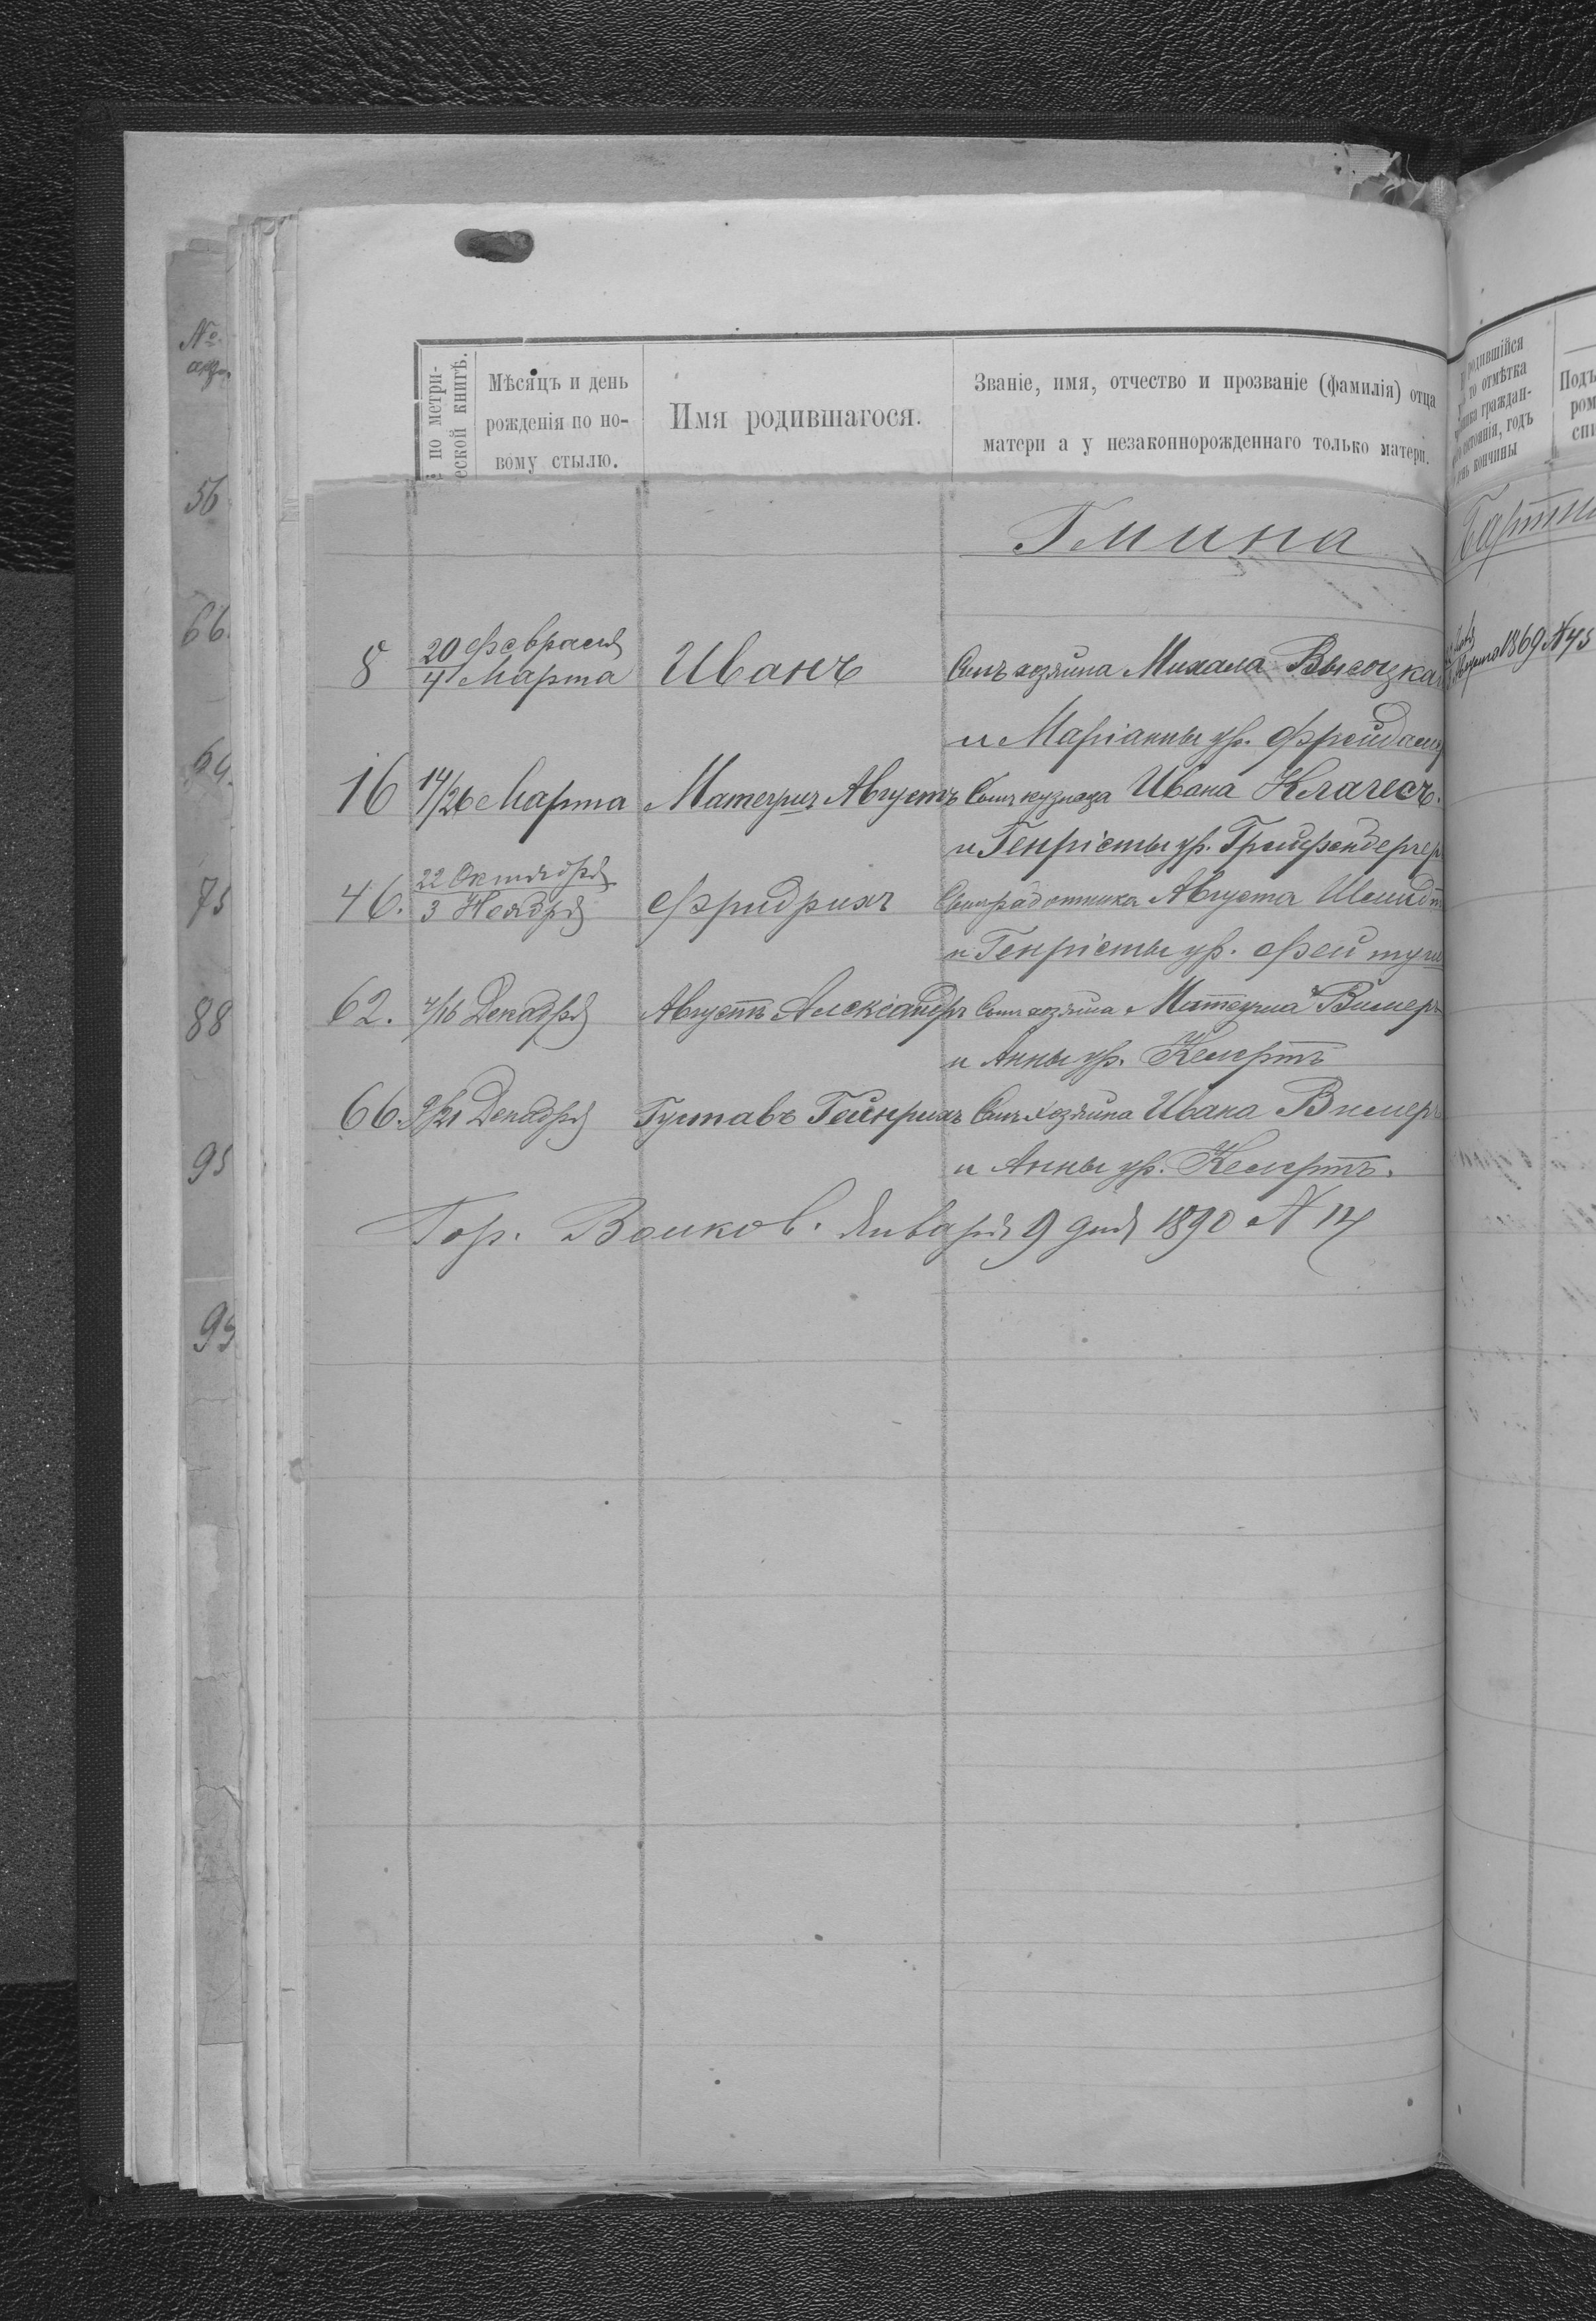 №
56
66.
64.
75
88
95
95
по метри-
еской книгѣ.
Мѣсяцъ и день
рожденія по но-
вому стылю.
Имя родившагося.
Званіе, имя, отчество и прозваніе (фамилія) отца
матери а у незаконнорожденнаго только матери.
родившійся
то отмѣтка
граждан-
состоянія, годъ
кончины
Подъ
ром
спи
Гмина
8 20 Февраля
4 Марта Иванъ Сынъ хозяина Михала Высоцка
1869 N 45
и Маріанны ур.
16 14/26 Марта Матеушъ Августъ Сынъ кузнеца Ивана
и Генріеты ур.
46. 22 Октября
3 Ноября Фридрихъ Сынъ работника Августа Шмидт
и Генріеты ур.
62. 4/16 Декабря Августъ Александръ Сынъ хозяина Матеуша Вимеръ
и Анны ур. Кемертъ
66. 9/21 Декабря Густавъ Гейнрихъ Сынъ хозяина Ивана Вимеръ
и Анны ур. Кемертъ.
Гор. Волков. Января 9 дня 1890 N 14